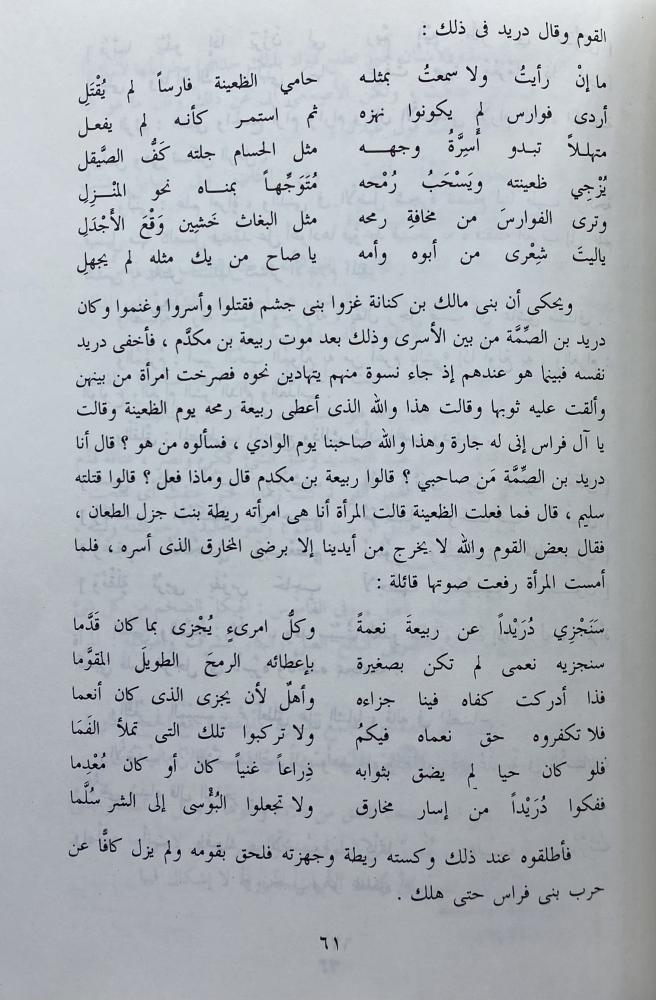 القوم وقال دريد فى ذلك :
ما إنْ رأيتُ ولا سمعتُ بمثله حامي الظعينة فارساً لم يُقْتَلِ
أردى فوارس لم يكونوا نهزه ثم استمر كأنه لم يفعل
متهللاً تبدو أَسِرَّةُ وجهه مثل الحسام جلته كَفُّ الصَّيقل
يُزْجِي ظعينته ويَسْحَبُ رُمْحه مُتَوَجِّهاً بمناه نحو المنْزِلِ
وترى الفوارسَ من مخافةِ رمحه مثل البغاث خَشِين وَقْعَ الأَجْدَلِ
ياليتَ شِعْرى من أبوه وأمه يا صاح من يك مثله لم يجهلِ
ويحكى أن بنى مالك بن كنانة غزوا بنى جشم فقتلوا وأسروا وغنموا وكان
دريد بن الصِّمَّة من بين الأسرى وذلك بعد موت ربيعة بن مكدَّم ، فأخفى دريد
نفسه فبينما هو عندهم إذ جاء نسوة منهم يتهادين نحوه فصرخت امرأة من بينهن
وألقت عليه ثوبها وقالت هذا والله الذى أعطى ربيعة رمحه يوم الظعينة وقالت
يا آل فراس إنى له جارة وهذا والله صاحبنا يوم الوادي ، فسألوه من هو ؟ قال أنا
دريد بن الصِّمَّة مَن صاحبي ؟ قالوا ربيعة بن مكدم قال وماذا فعل ؟ قالوا قتلته
سليم ، قال فما فعلت الظعينة قالت المرأة أنا هى امرأته ريطة بنت جزل الطعان ،
فقال بعض القوم والله لا يخرج من أيدينا إلا برضى المخارق الذى أسره ، فلما
أمست المرأة رفعت صوتها قائلة :
سَنَجْزِي دُرَيْداً عن ربيعةَ نعمةً وكلُّ امرىءٍ يُجْزى بما كان قَدَّما
سنجزيه نعمى لم تكن بصغيرة بإعطائه الرمحَ الطويلَ المقوَّما
فذا أدركت كفاه فينا جزاءه وأهلٌ لأن يجزى الذى كان أنعما
فلا تكفروه حق نعماه فيكمُ ولا تركبوا تلك التى تملأ الفَمَا
فلو كان حيا لم يضق بثوابه ذِراعاً غنياً كان أو كان مُعْدِما
ففكوا دُرَيْداً من إسار مخارق ولا تجعلوا البُؤْسى إلى الشر سُلَّما
فأطلقوه عند ذلك وكسته ريطة وجهزته فلحق بقومه ولم يزل كافًّا عن
حرب بنى فراس حتى هلك .
٦١